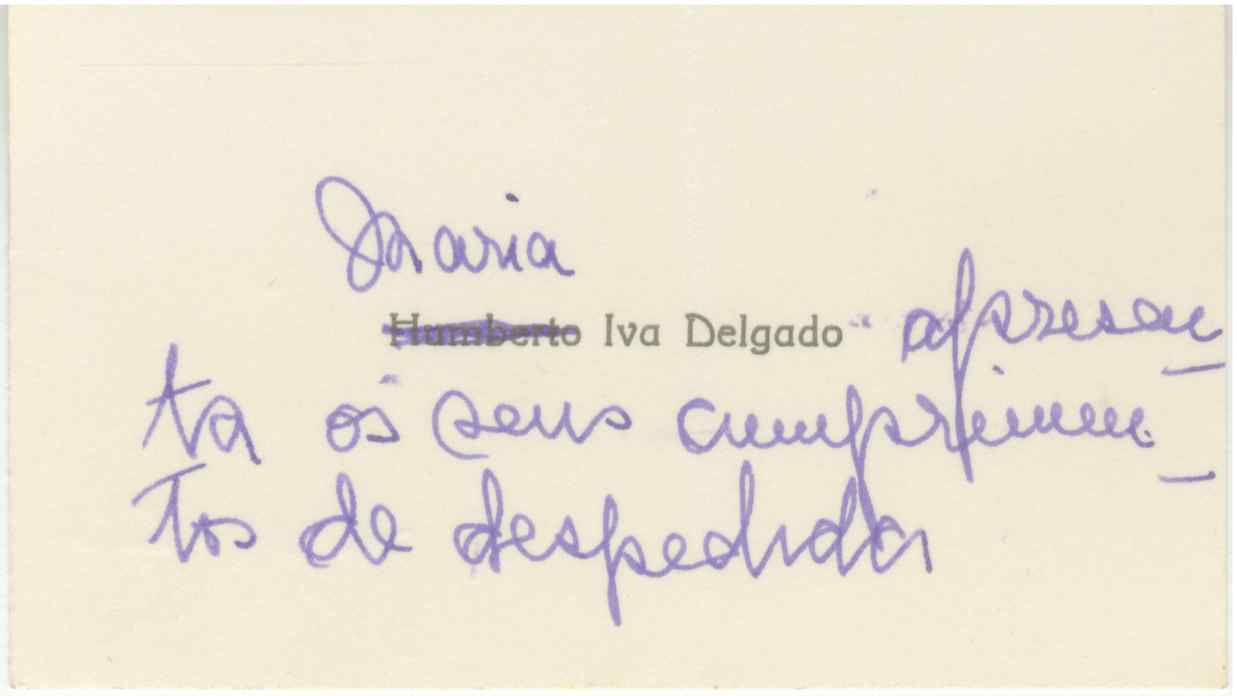 Maria
Humberto Iva Delgado apresen-
ta os seus cumprimen-
tos de despedida